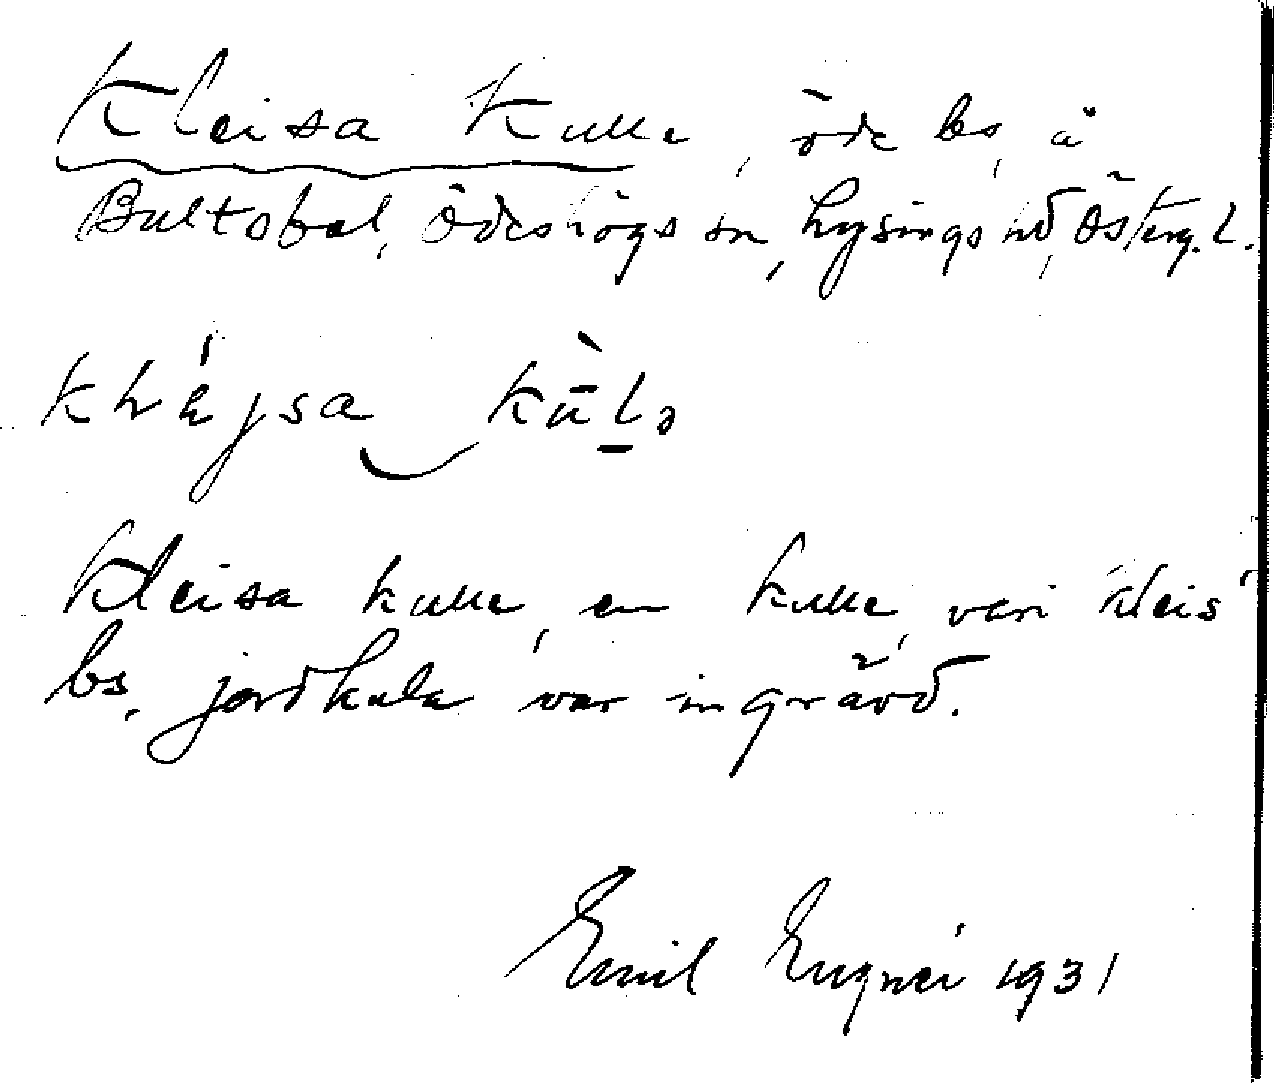 Kleisa Kulle, öde bs, å
Bultsbol, Ödeshögs sn, Lysings hd, Österg. L.
Kleisa kulle, en kulle, vari Kleis'
bs, jordkula var ingrävd.
Emil Engnér 1931